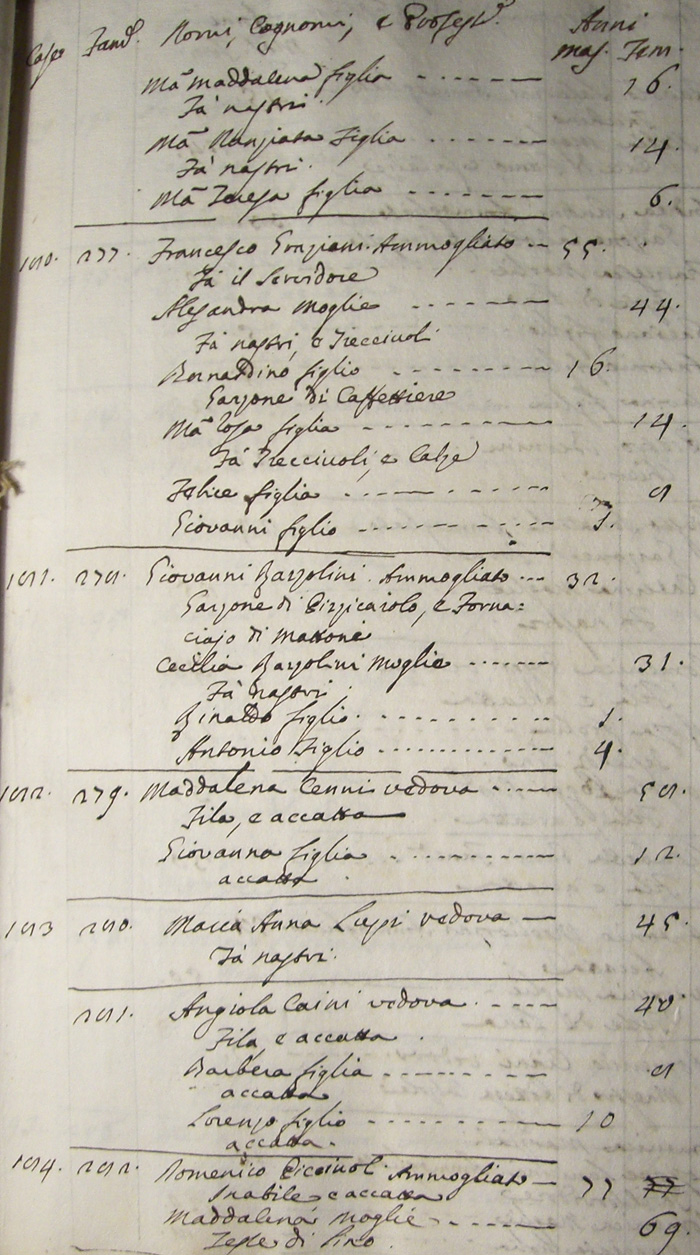 Case Famᵉ. Nomi, Cognomi, e Profesⁿⁱ Anni
mas. Fem.
Mᵃ Maddalena figlia 16.
Fà nastri.
Mᵃ Nunziata Figlia 14.
Fà nastri.
Mᵃ Teresa figlia 6.
180. 277. Francesco Graziani Ammogliato 55.
Fà il Servidore
Alesandra Moglie 44.
Fà nastri, e Trecciuoli
Bernardino figlio 16.
Garzone di Caffettiere
Mᵃ Rosa figlia 14.
Fà Trecciuoli, e Calze
Felice figlia 8
Giovanni figlio
181. 278. Giovanni Bazzolini Ammogliato 32.
Garzone di Pizzicaiolo, e Forna=
ciajo di Mattone
Cecilia Bazzolini Moglie 31.
Fà nastri
Rinaldo figlio 1.
Antonio Figlio 4.
182. 279. Maddalena Cenni vedova 58.
Fila, e accatta
Giovanna figlia 12.
accatta
183 280. Maria Anna Lupi vedova 45
Fà nastri.
281. Angiola Caini vedova 40
Fila, e accatta
Barbera figlia 8
accatta
Lorenzo figlio 10
accatta.
184. 282. Domenico Ammogliato 77
Inabile e accatta
Maddalena Moglie 69.
Tesse di Lino